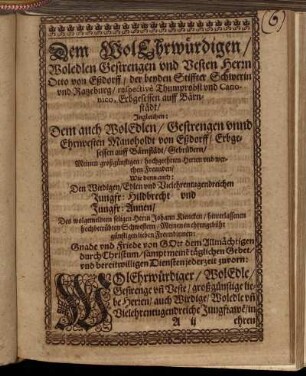 Dem WolEhrwürdigen/
Woledlen Gestrengen und Vesten Herrn
Otto von Eßdorff/ der beyden Stiffter Schwerin
und Razeburg/ respectivè Thumprobst und Cano-
nico, Erbgesessen auff Barn-
städt/
Ingleichen:
Dem auch WolEdlen/ Gestrengen unnd
Ehrnvesten Manholdt von Eßdorff/ Erbge-
sessen auff Barnstädt/ Gebrüdern/
Meinen großgünstigen/ hochgeehrten Herren und wer-
then Freunden/
Wie dann auch:
Den Wirdigen/ Edlen und Vielehrentugendreichen
Jungfr: Hildbrecht und
Jungfr: Annen/
Des wolgemeldten seligen Herrn Johann
hochbetrübten Schwestern/ Meinen
günstigen lieben Freundinnen:
Gnade und Friede von GOtt dem Allmächtigen
durch Christum/ sampt meint täglichen Gebet/
und bereitwilligen Diensten jederzeit zuvorn:
WOlEhrwürdiger/ WolEdle/
Gestrenge uñ Veste/ großgünstige lie-
be Herren/ auch Würdige/ Woledle uñ
Vielehrentugendreiche Jungfrawē/ in
A ij ehren